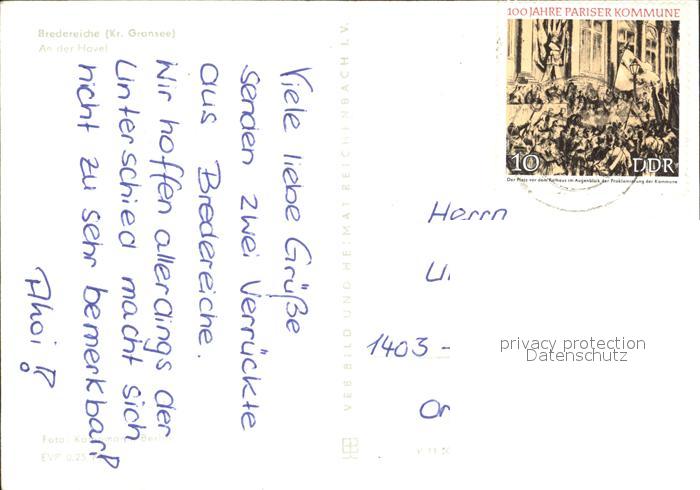 Bredereiche (Kr. Gransee)
An der Havel
Viele liebe Grüße
senden zwei Verrückte
aus Bredereiche.
Wir hoffen allerdings der
Unterschied macht sich
nicht zu sehr bemerkbar!?
Ahoi!?
EVP 0,25
VEB BILD UND HEIMAT REICHENBACH I. V.
100 JAHRE PARISER KOMMUNE
10 DDR
Der Platz vor dem Rathaus im Augenblick der Proklamierung der Kommune
Herrn
1403 -
privacy protection
Datenschutz